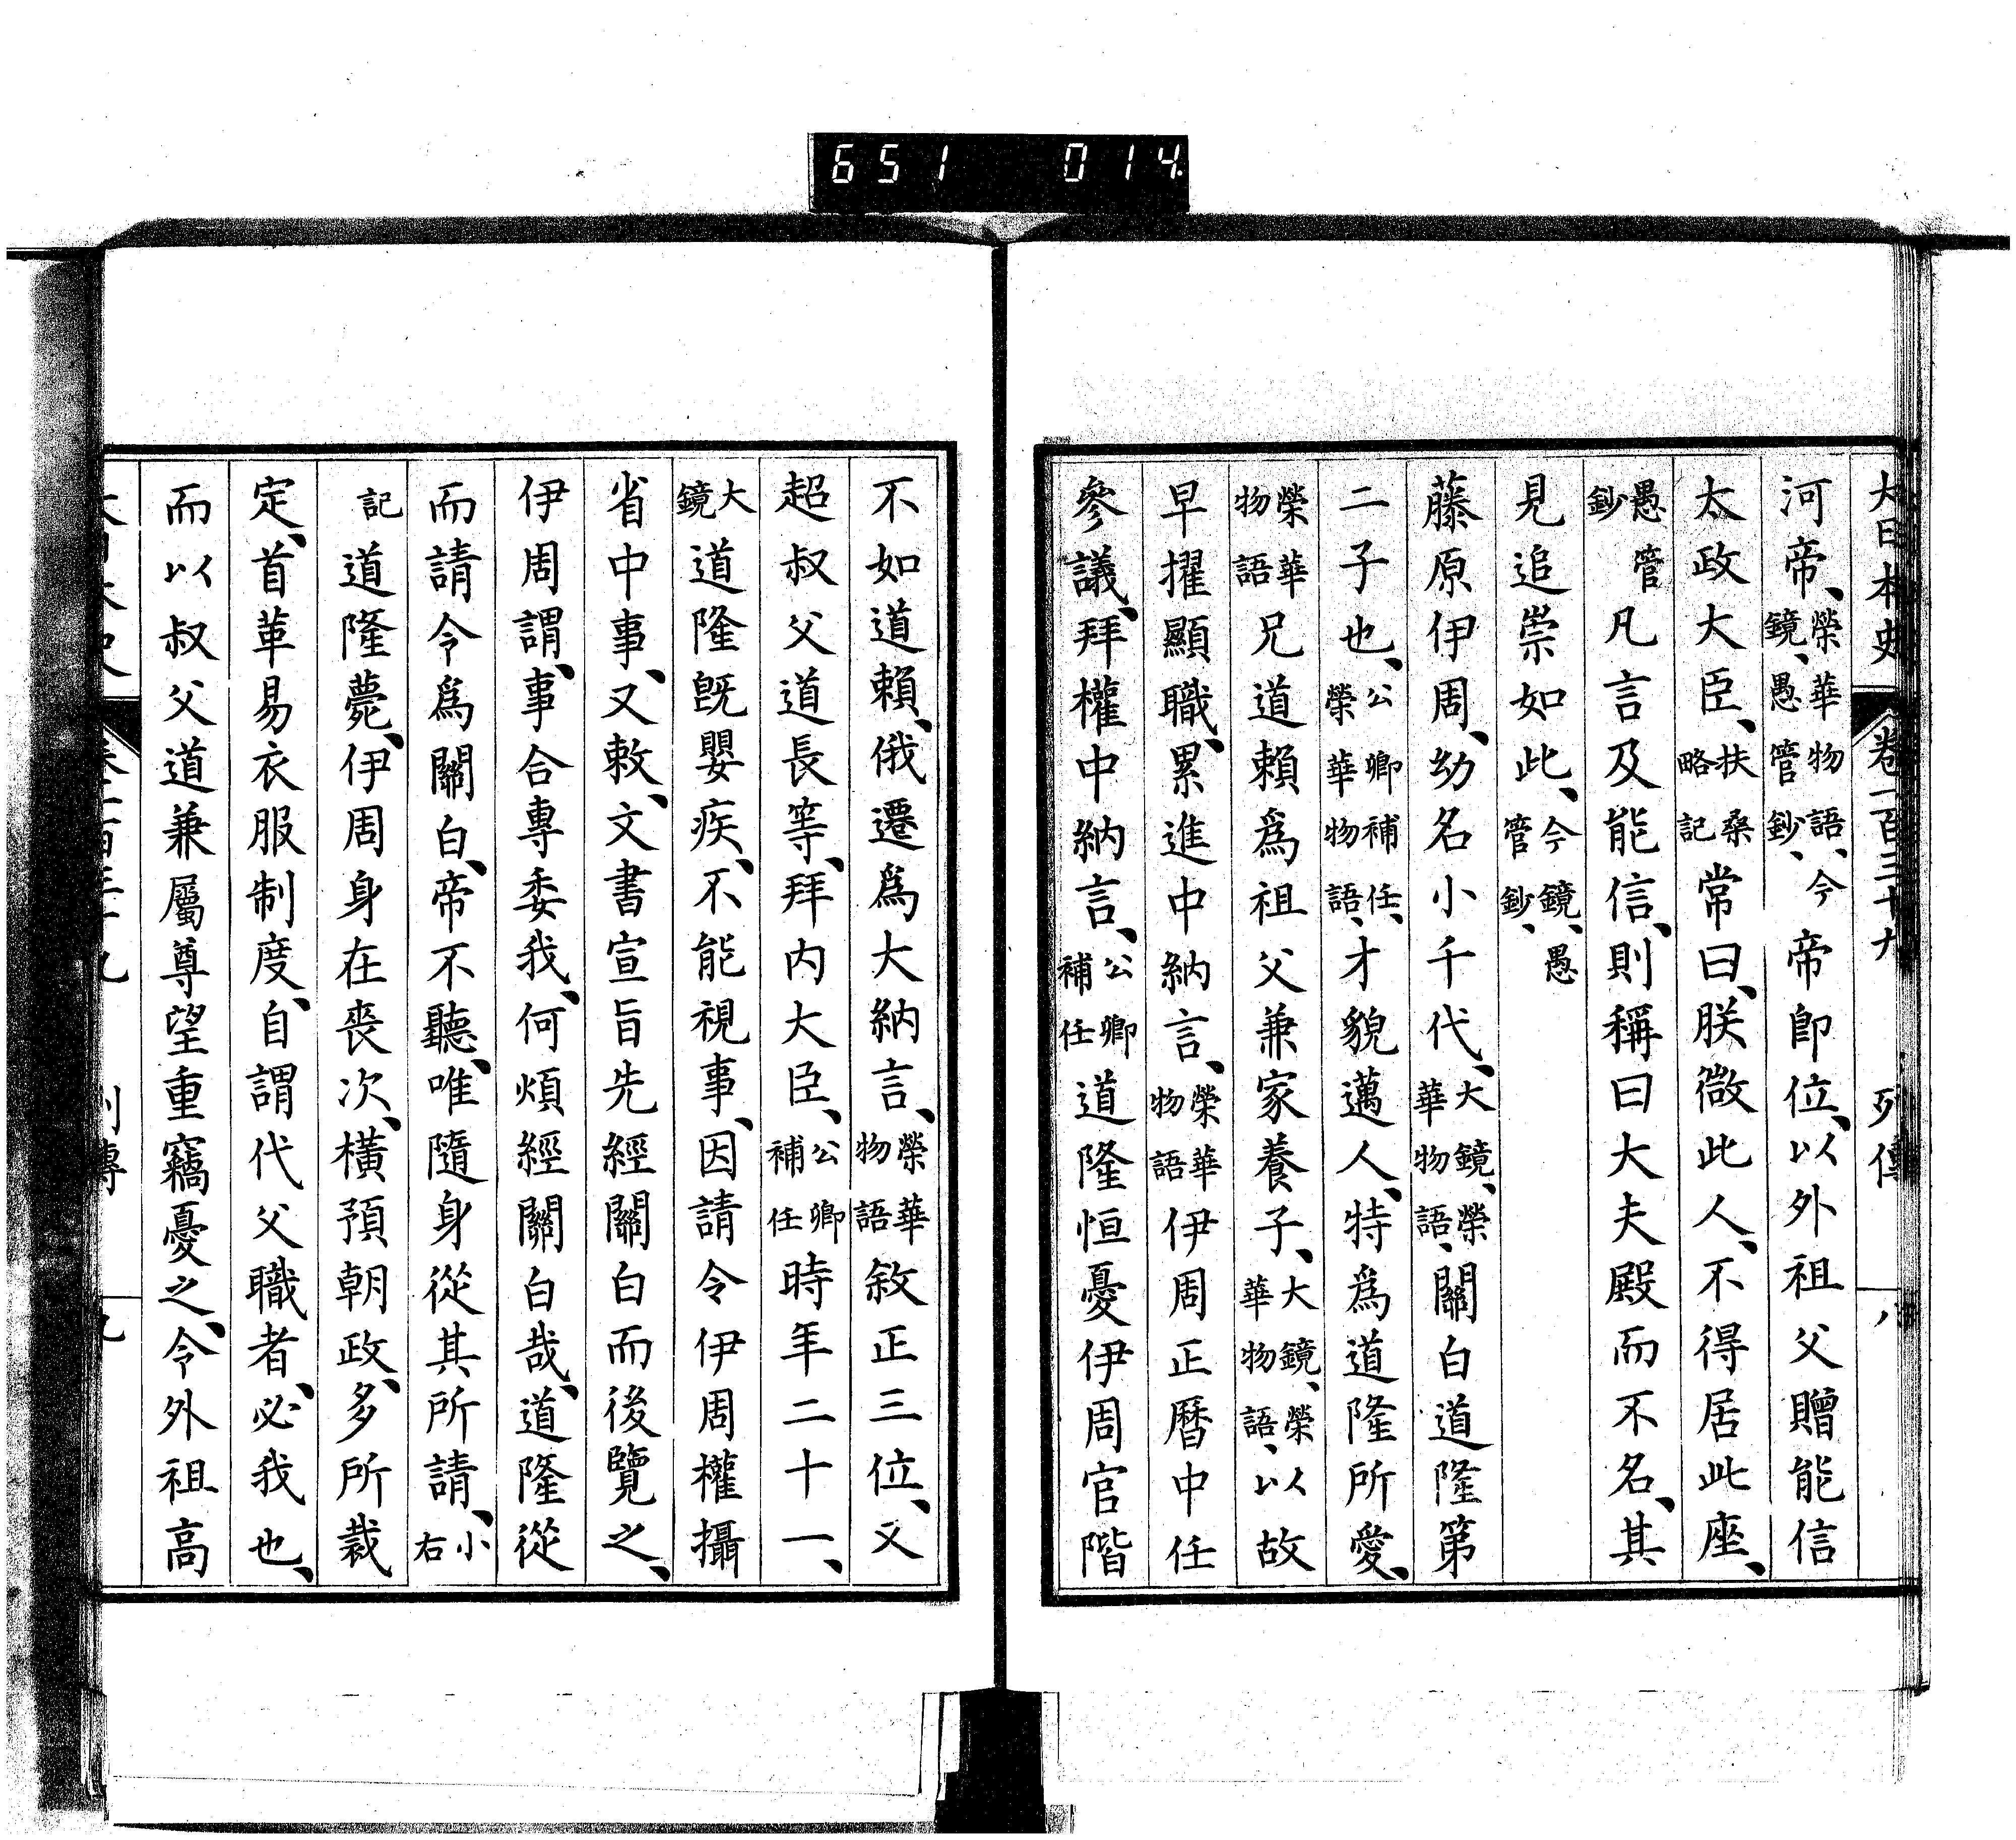 651 014
大日本史 卷一百三十九 列傳 八
河帝、榮華物語、今鏡、愚管鈔、帝卽位、以外祖父贈能信
太政大臣、扶桑略記常曰、朕微此人、不得居此座、
愚管鈔凡言及能信、則稱曰大夫殿而不名、其
見追崇如此、今鏡、愚管鈔、
藤原伊周、幼名小千代、大鏡、榮華物語、關白道隆第
二子也、公卿補任、榮華物語、才貌邁人、特爲道隆所愛、
榮華物語兄道賴爲祖父兼家養子、大鏡、榮華物語、以故
早擢顯職、累進中納言、榮華物語伊周正曆中任
參議、拜權中納言、公卿補任道隆恒憂伊周官階
不如道賴、俄遷爲大納言、榮華物語敘正三位、又
超叔父道長等、拜內大臣、公卿補任時年二十一、
大鏡道隆旣嬰疾、不能視事、因請令伊周權攝
省中事、又敕、文書宣旨先經關白而後覽之、
伊周謂、事合專委我、何煩經關白哉、道隆從
而請令爲關白、帝不聽、唯隨身從其所請、小右
記道隆薨、伊周身在喪次、橫預朝政、多所裁
定、首革易衣服制度、自謂代父職者、必我也、
而以叔父道兼屬尊望重竊憂之、令外祖高
列傳 九